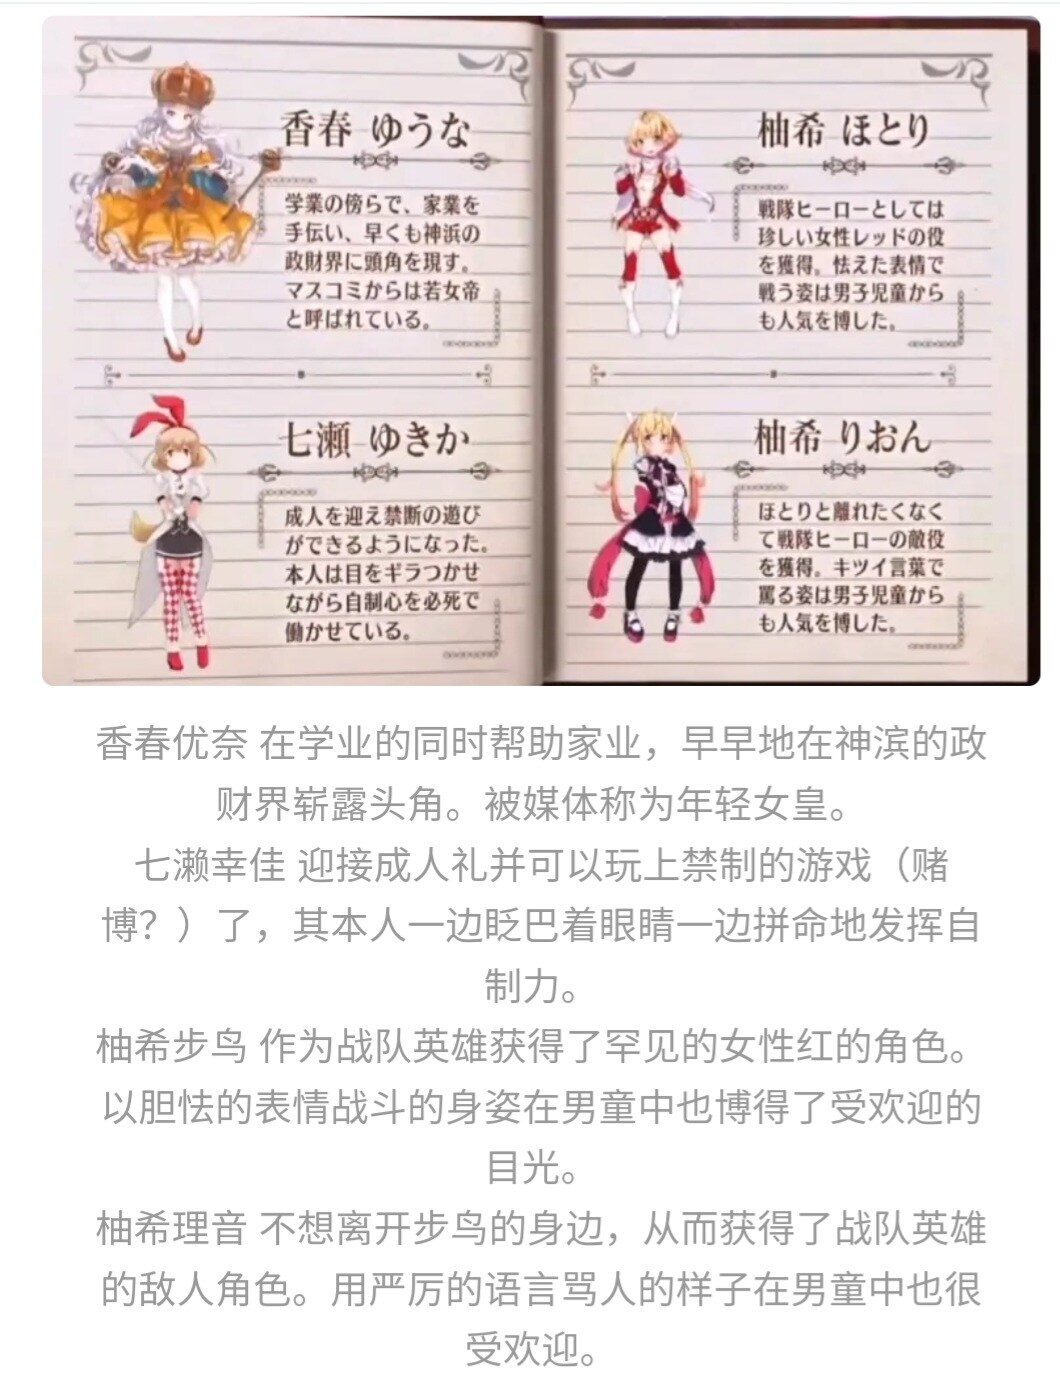 香春 ゆうな
学業の傍らで、家業を
手伝い、早くも神浜の
政財界に頭角を現す。
マスコミからは若女帝
と呼ばれている。
七瀬 ゆきか
成人を迎え禁断の遊び
ができるようになった。
本人は目をギラつかせ
ながら自制心を必死で
働かせている。
柚希 ほとり
戦隊ヒーローとしては
珍しい女性レッドの役
を獲得。怯えた表情で
戦う姿は男子児童から
も人気を博した。
柚希 りおん
ほとりと離れたくなく
て戦隊ヒーローの敵役
を獲得。キツイ言葉で
罵る姿は男子児童から
も人気を博した。
香春优奈 在学业的同时帮助家业，早早地在神滨的政
财界崭露头角。被媒体称为年轻女皇。
七濑幸佳 迎接成人礼并可以玩上禁制的游戏（赌
博？）了，其本人一边眨巴着眼睛一边拼命地发挥自
制力。
柚希步鸟 作为战队英雄获得了罕见的女性红的角色。
以胆怯的表情战斗的身姿在男童中也博得了受欢迎的
目光。
柚希理音 不想离开步鸟的身边，从而获得了战队英雄
的敌人角色。用严厉的语言骂人的样子在男童中也很
受欢迎。